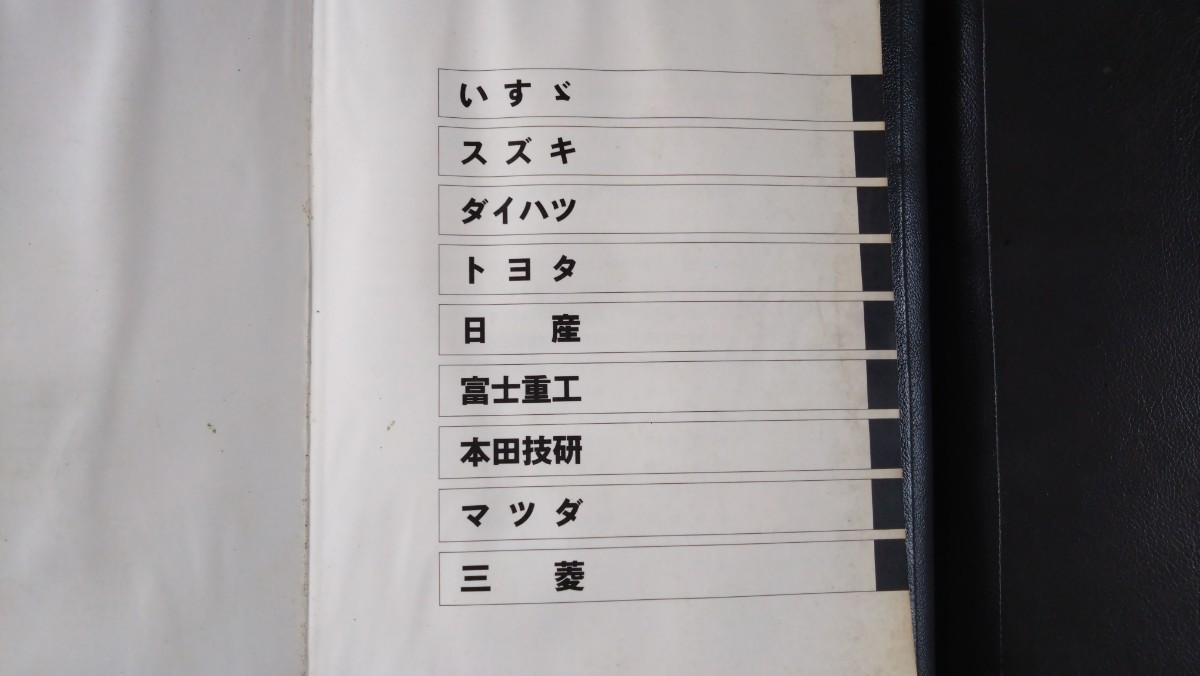 いすゞ
スズキ
ダイハツ
トヨタ
日産
富士重工
本田技研
マツダ
三菱